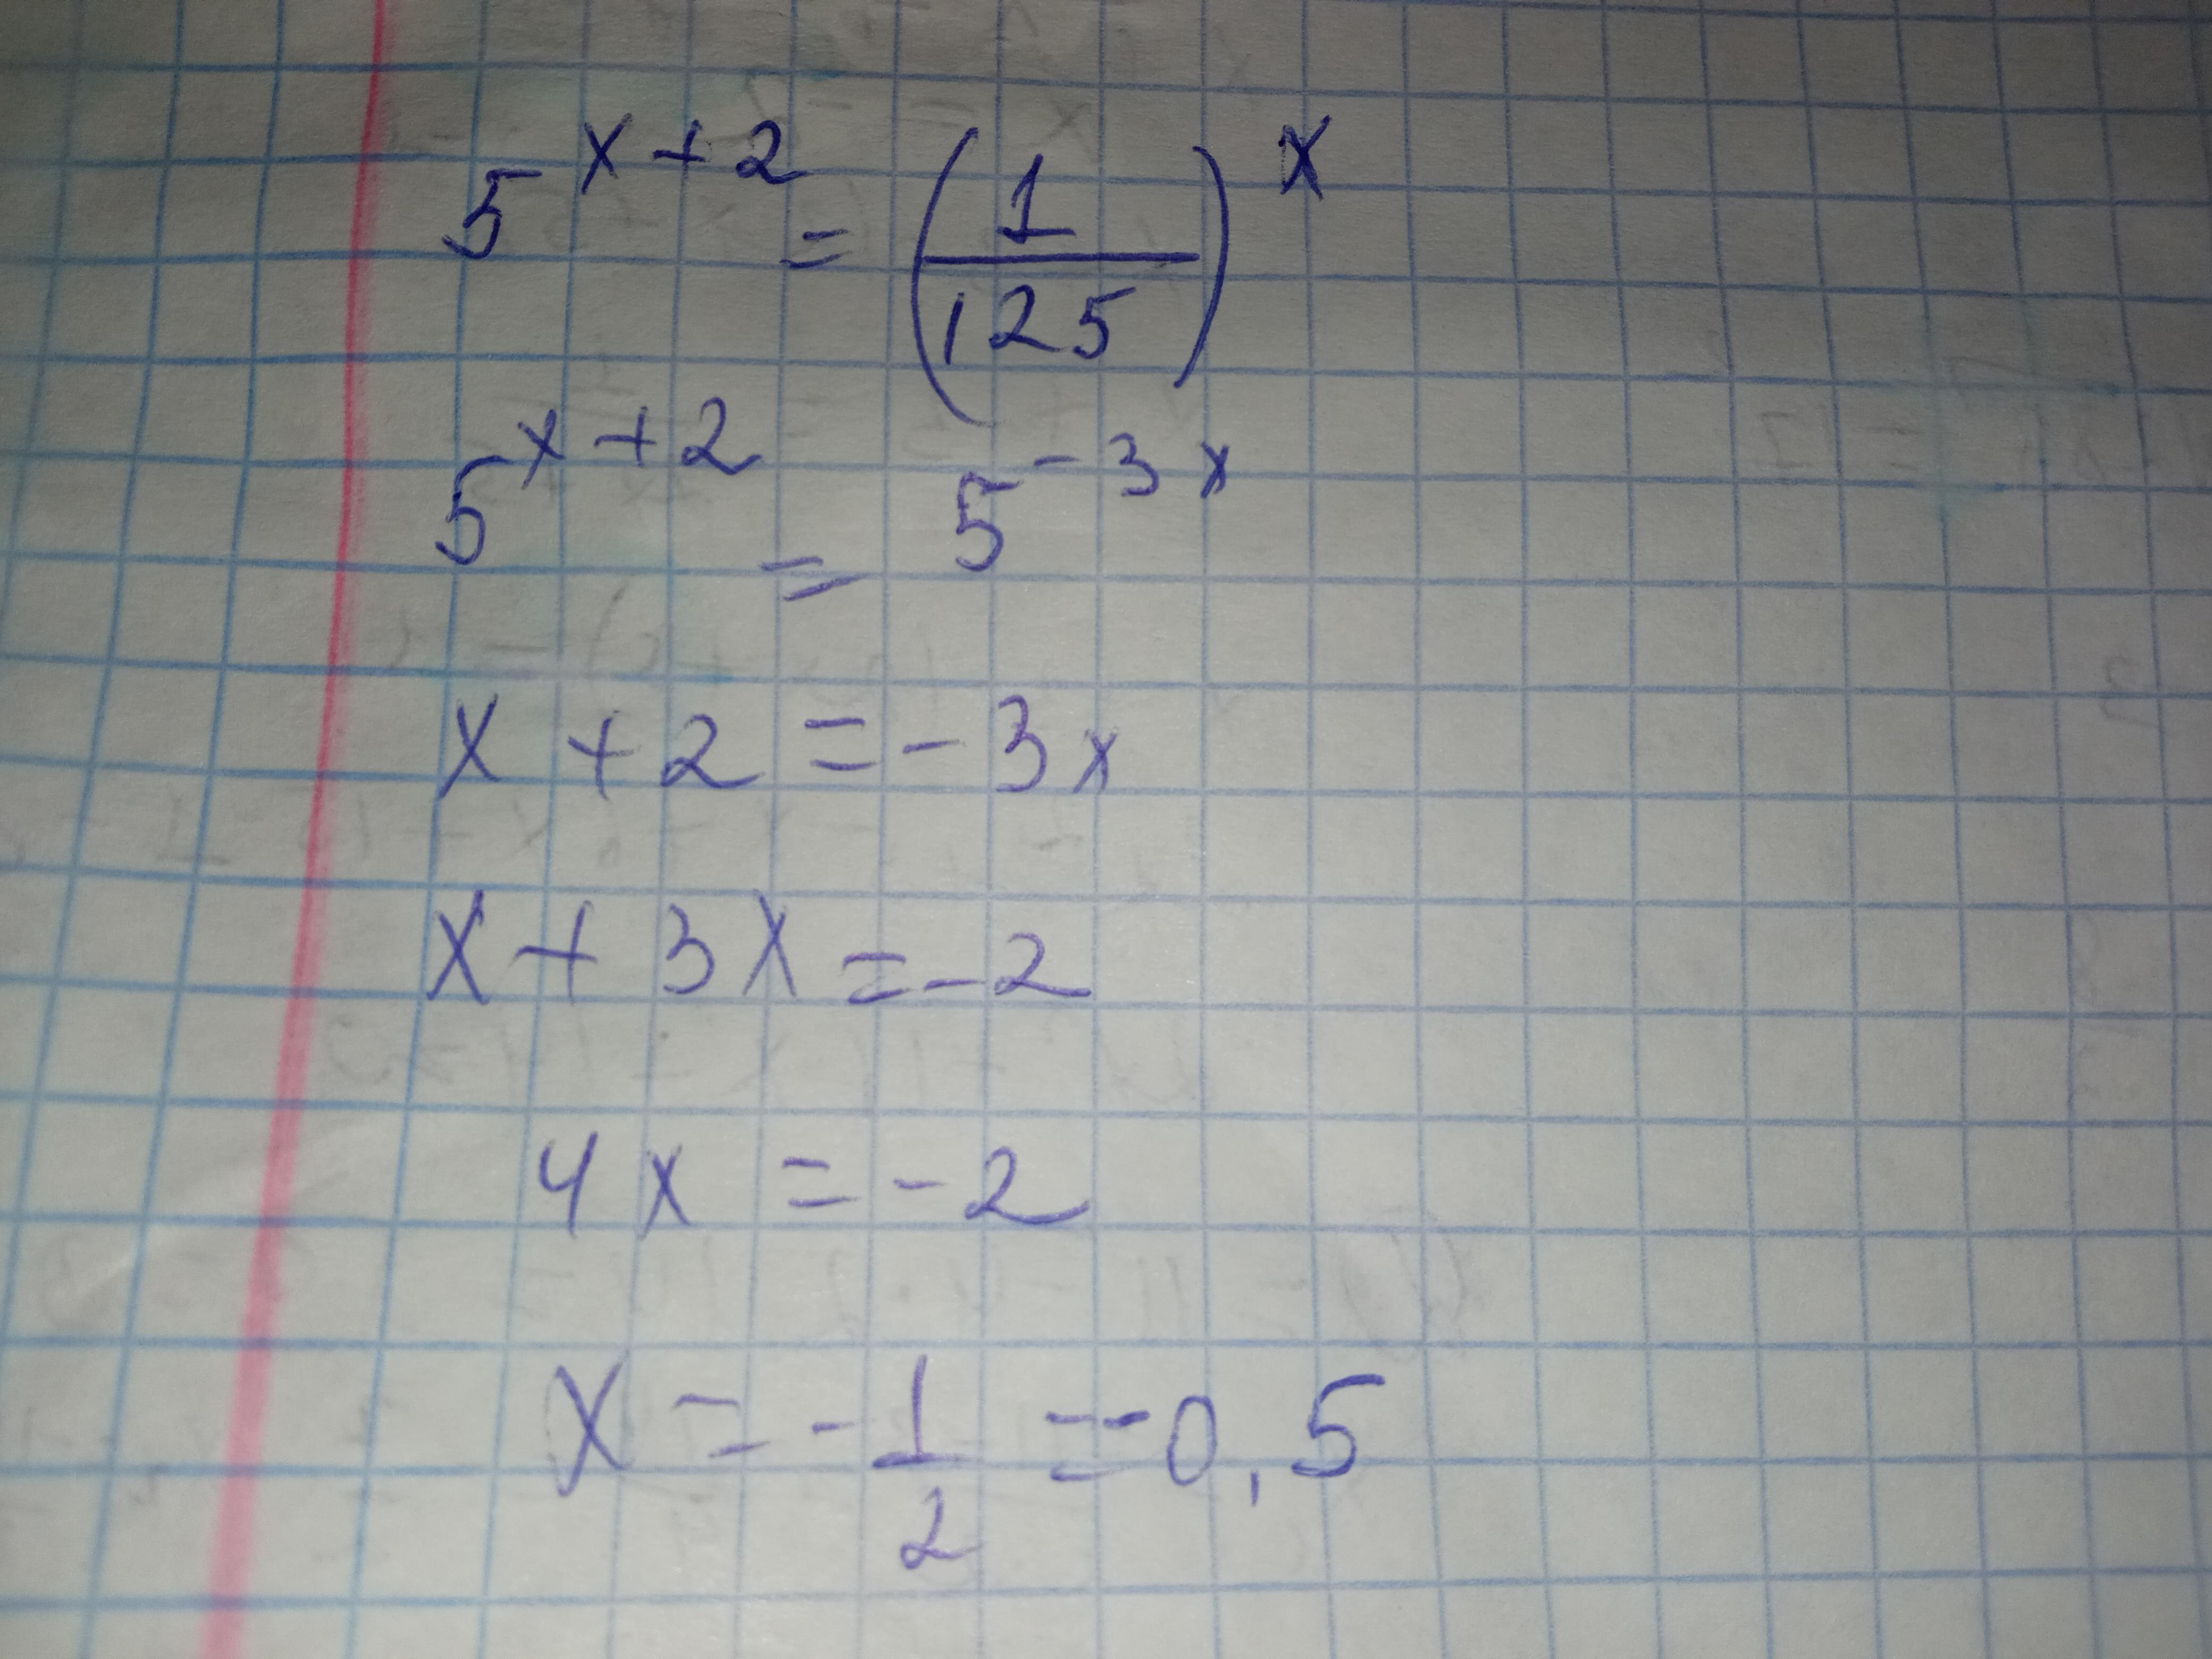 5^{x+2} = (1/125)^x
5^{x+2} = 5^{-3x}
x + 2 = -3x
x + 3x = -2
4x = -2
x = -1/2 = -0,5